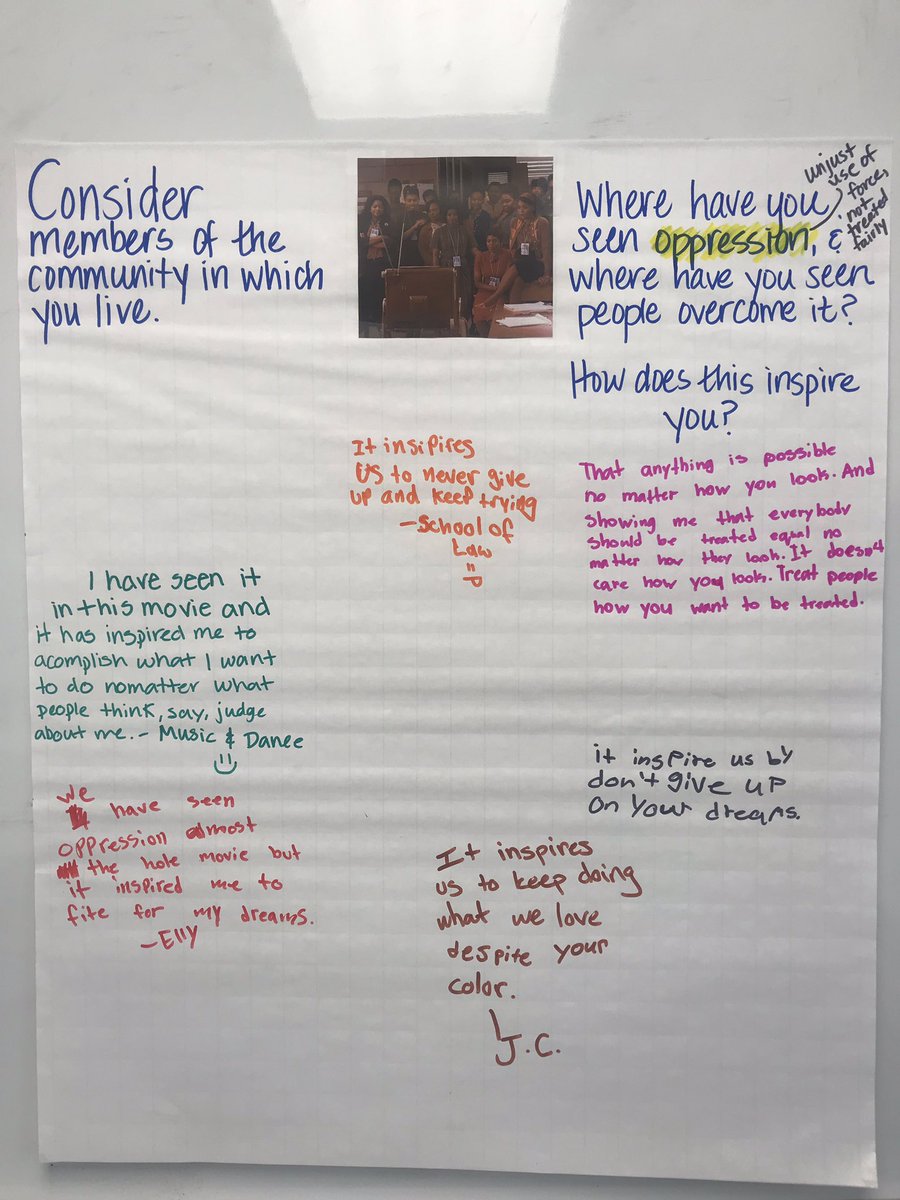 Consider
members of the
community in which
you live.
Where have you
seen oppression, &
where have you seen
people overcome it?
unjust
use of
force,
not
treated
fairly
How does this inspire
you?
It insipires
us to never give
up and keep trying
-School of
Law
=P
That anything is possible
no matter how you look. And
showing me that everybody
should be treated equal no
matter how they look. It doesn't
care how you look. Treat people
how you want to be treated.
I have seen it
in this movie and
it has inspired me to
acomplish what I want
to do nomatter what
people think, say, judge
about me. - Music & Dance
it inspire us by
don't give up
on your dreams.
We
have seen
oppression almost
the hole movie but
it inspired me to
fite for my dreams.
-Elly
It inspires
us to keep doing
what we love
despite your
color.
J.C.